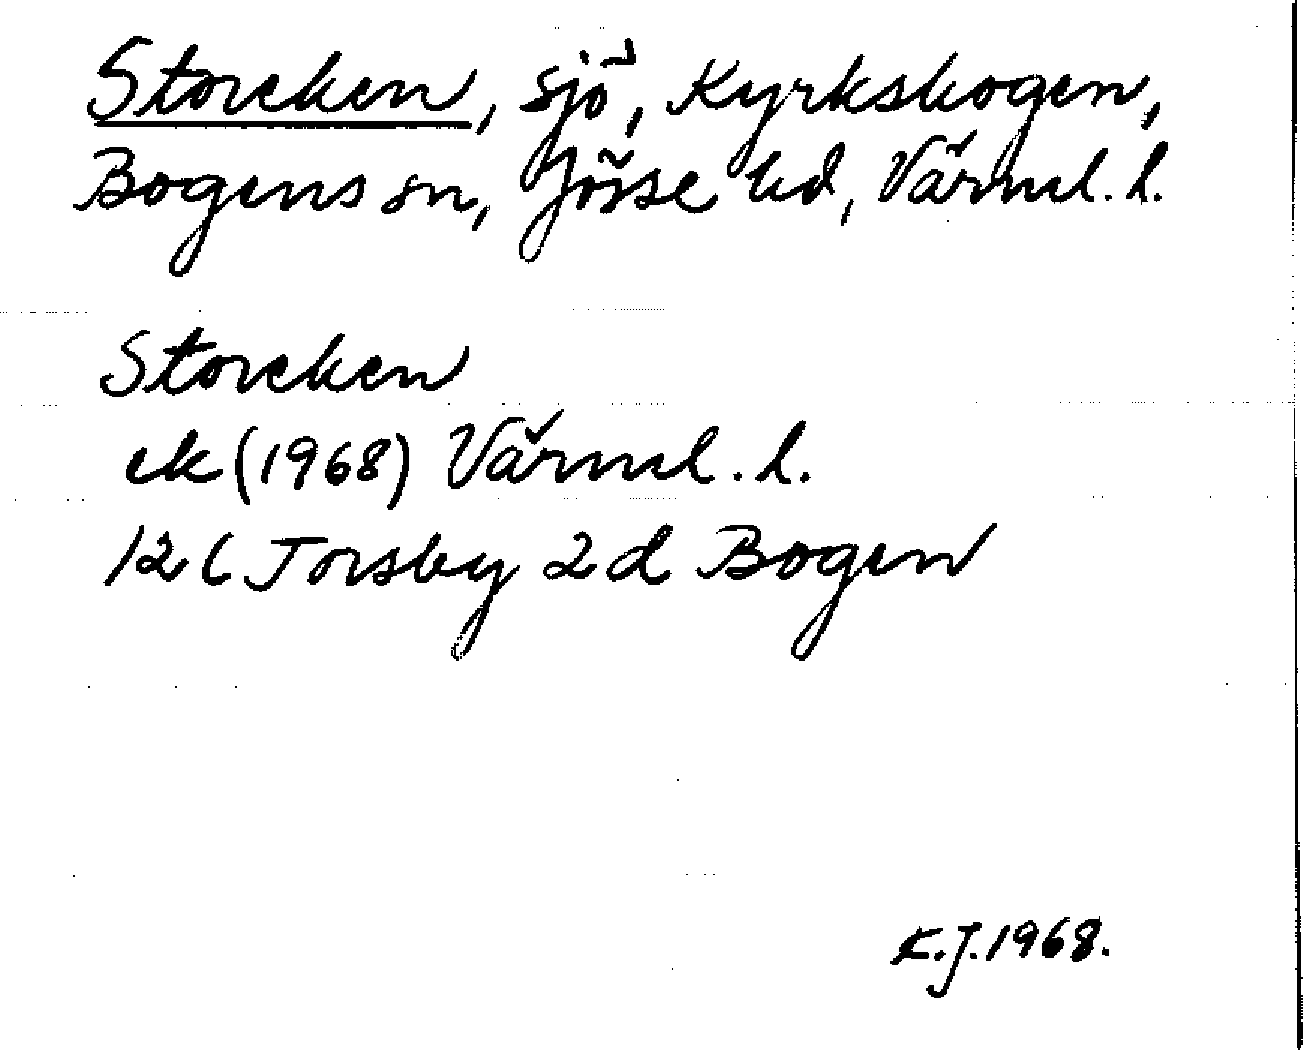 Storeken, sjö, Kyrkskogen,
Bogens sn, Jösse hd, Värml. l.
Storeken
ek (1968) Värml. l.
12 C Torsby 2 d Bogen
K.J. 1968.